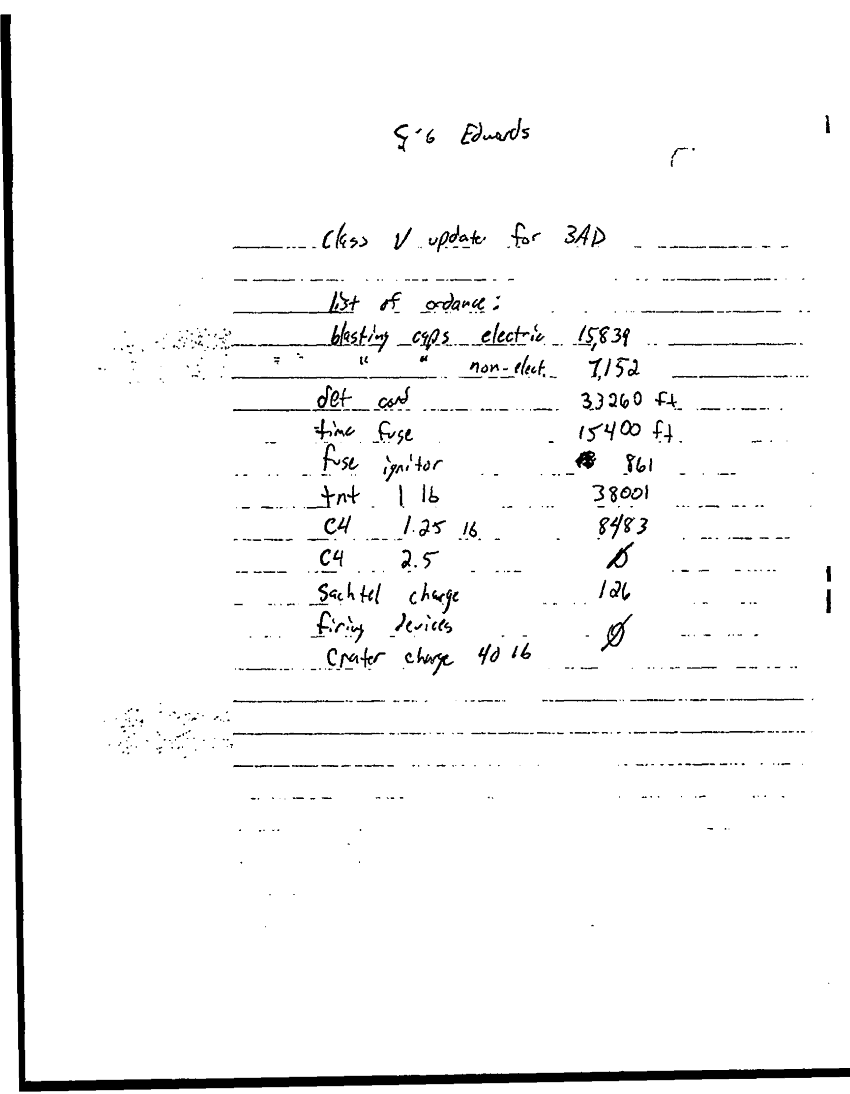 Edwards
Class V update for 3AD
list of ordance:
blasting caps electric 15,839
" " non-elect. 7,152
det cord 33260 ft
time fuse 15400 ft
fuse ignitor 861
tnt 1 lb 38001
C4 1.25 lb 8483
C4 2.5 Ø
Sachtel charge 126
firing devices Ø
Crater charge 40 lb